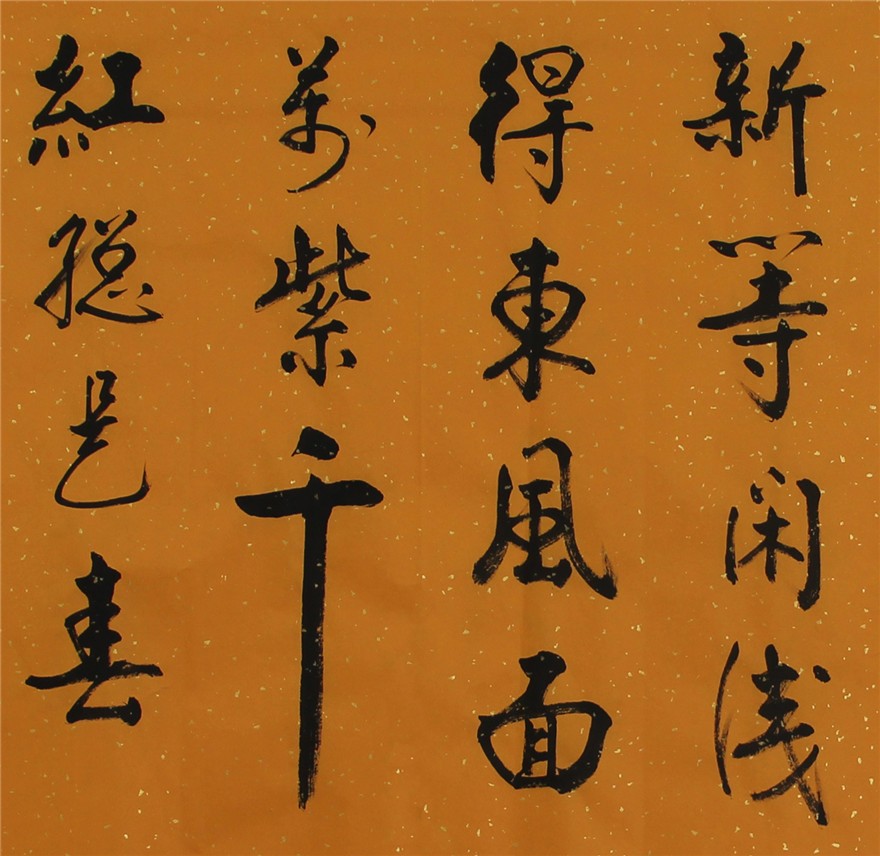 新等閑識
得東風面
萬紫千
紅總是春